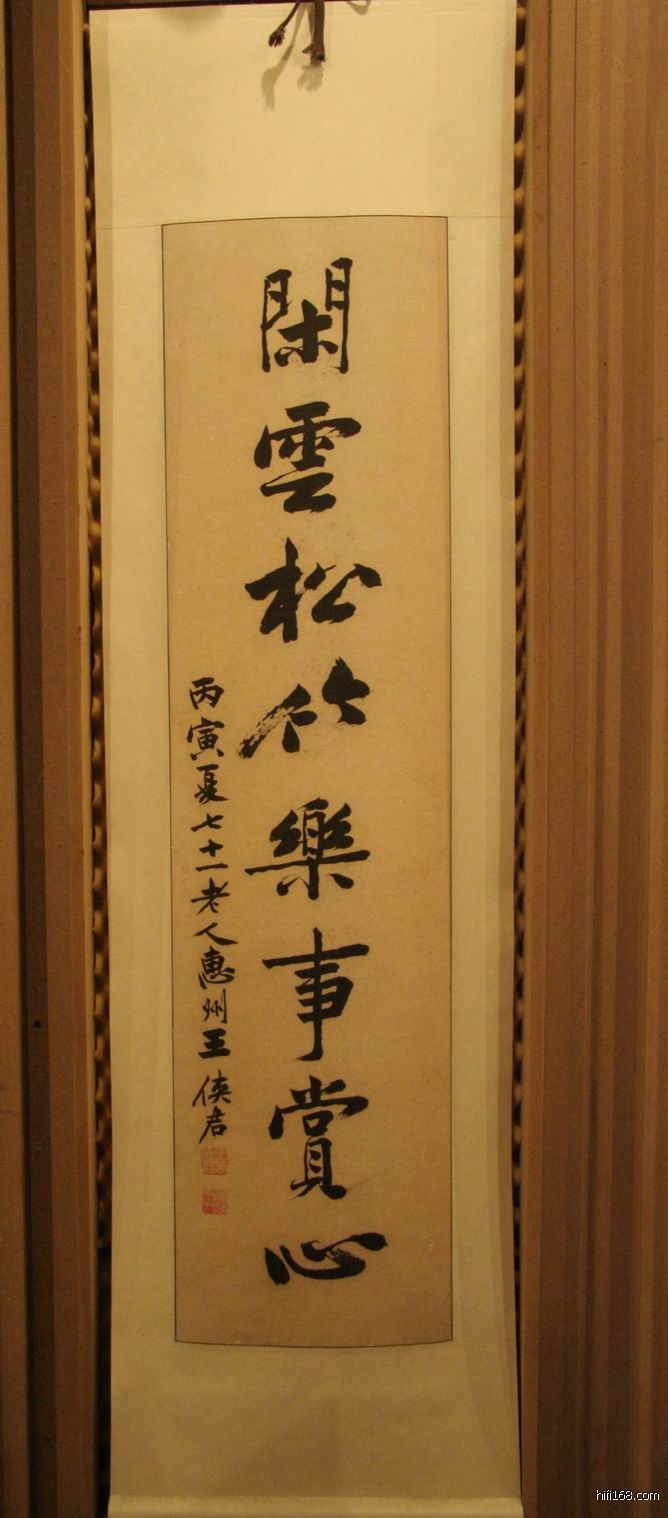 閑雲松竹樂事賞心
丙寅夏七十一老人惠州王俠君
hifi168.com